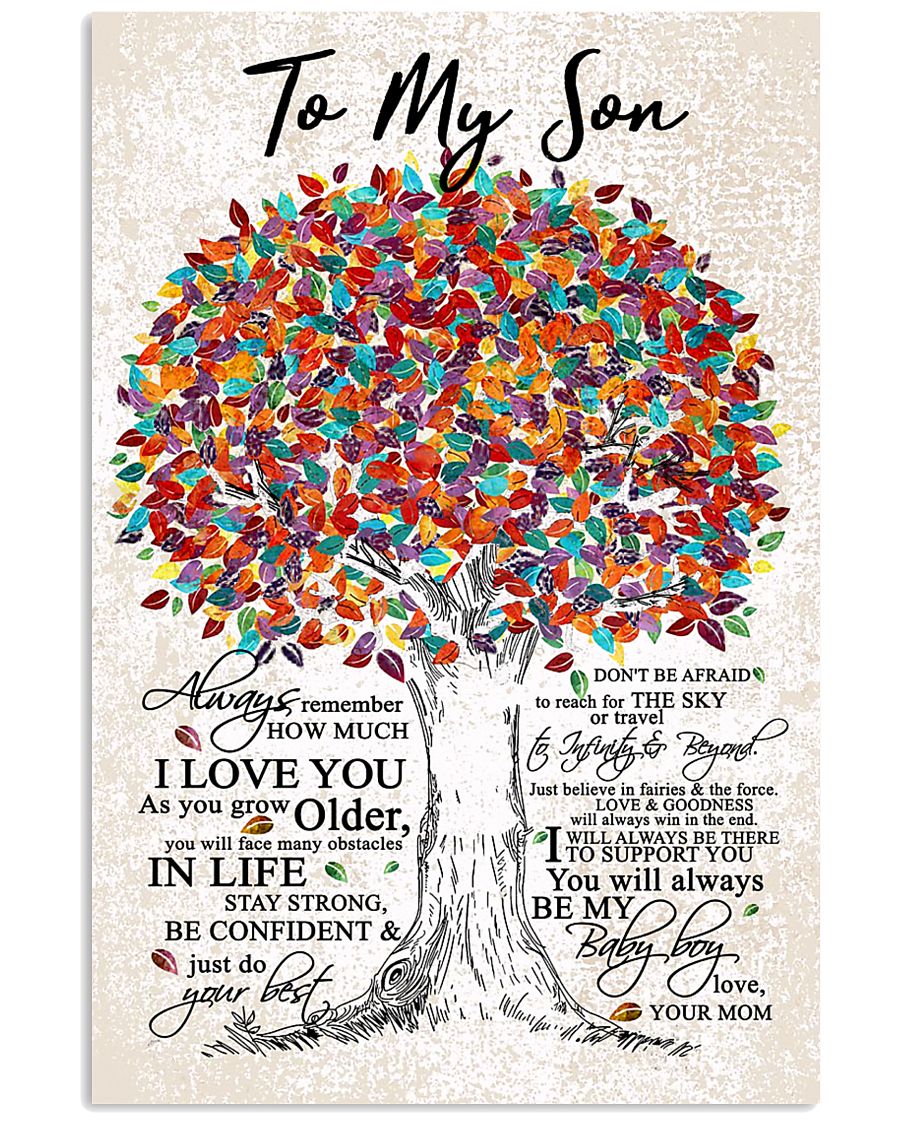 To My Son
Always, remember
HOW MUCH
I LOVE YOU
As you grow Older,
you will face many obstacles
IN LIFE
STAY STRONG,
BE CONFIDENT &
just do
your best
DON'T BE AFRAID
to reach for THE SKY
or travel
to Infinity & Beyond.
Just believe in fairies & the force.
LOVE & GOODNESS
will always win in the end.
I WILL ALWAYS BE THERE
TO SUPPORT YOU
You will always
BE MY
Baby boy
love,
YOUR MOM